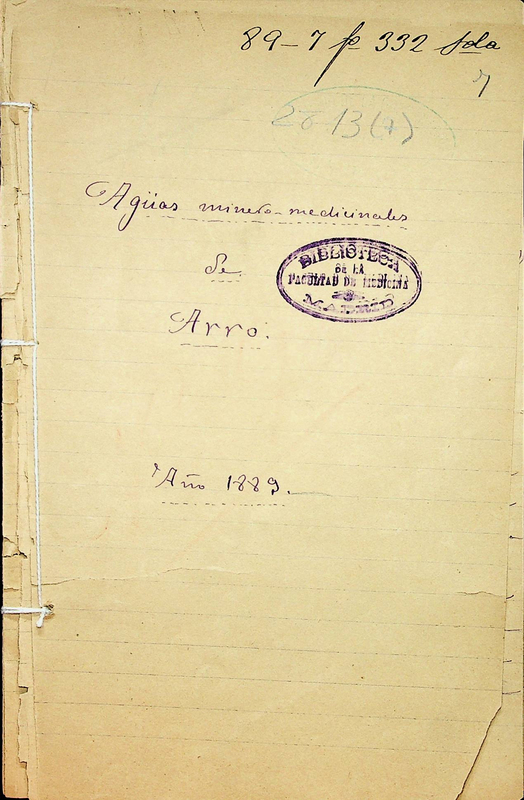 89-7 fº 332 sda
2813(7)
Agüas minero-medicinales
de
Arro.
BIBLIOTECA
DE LA
FACULTAD DE MEDICINA
MADRID
Año 1889.